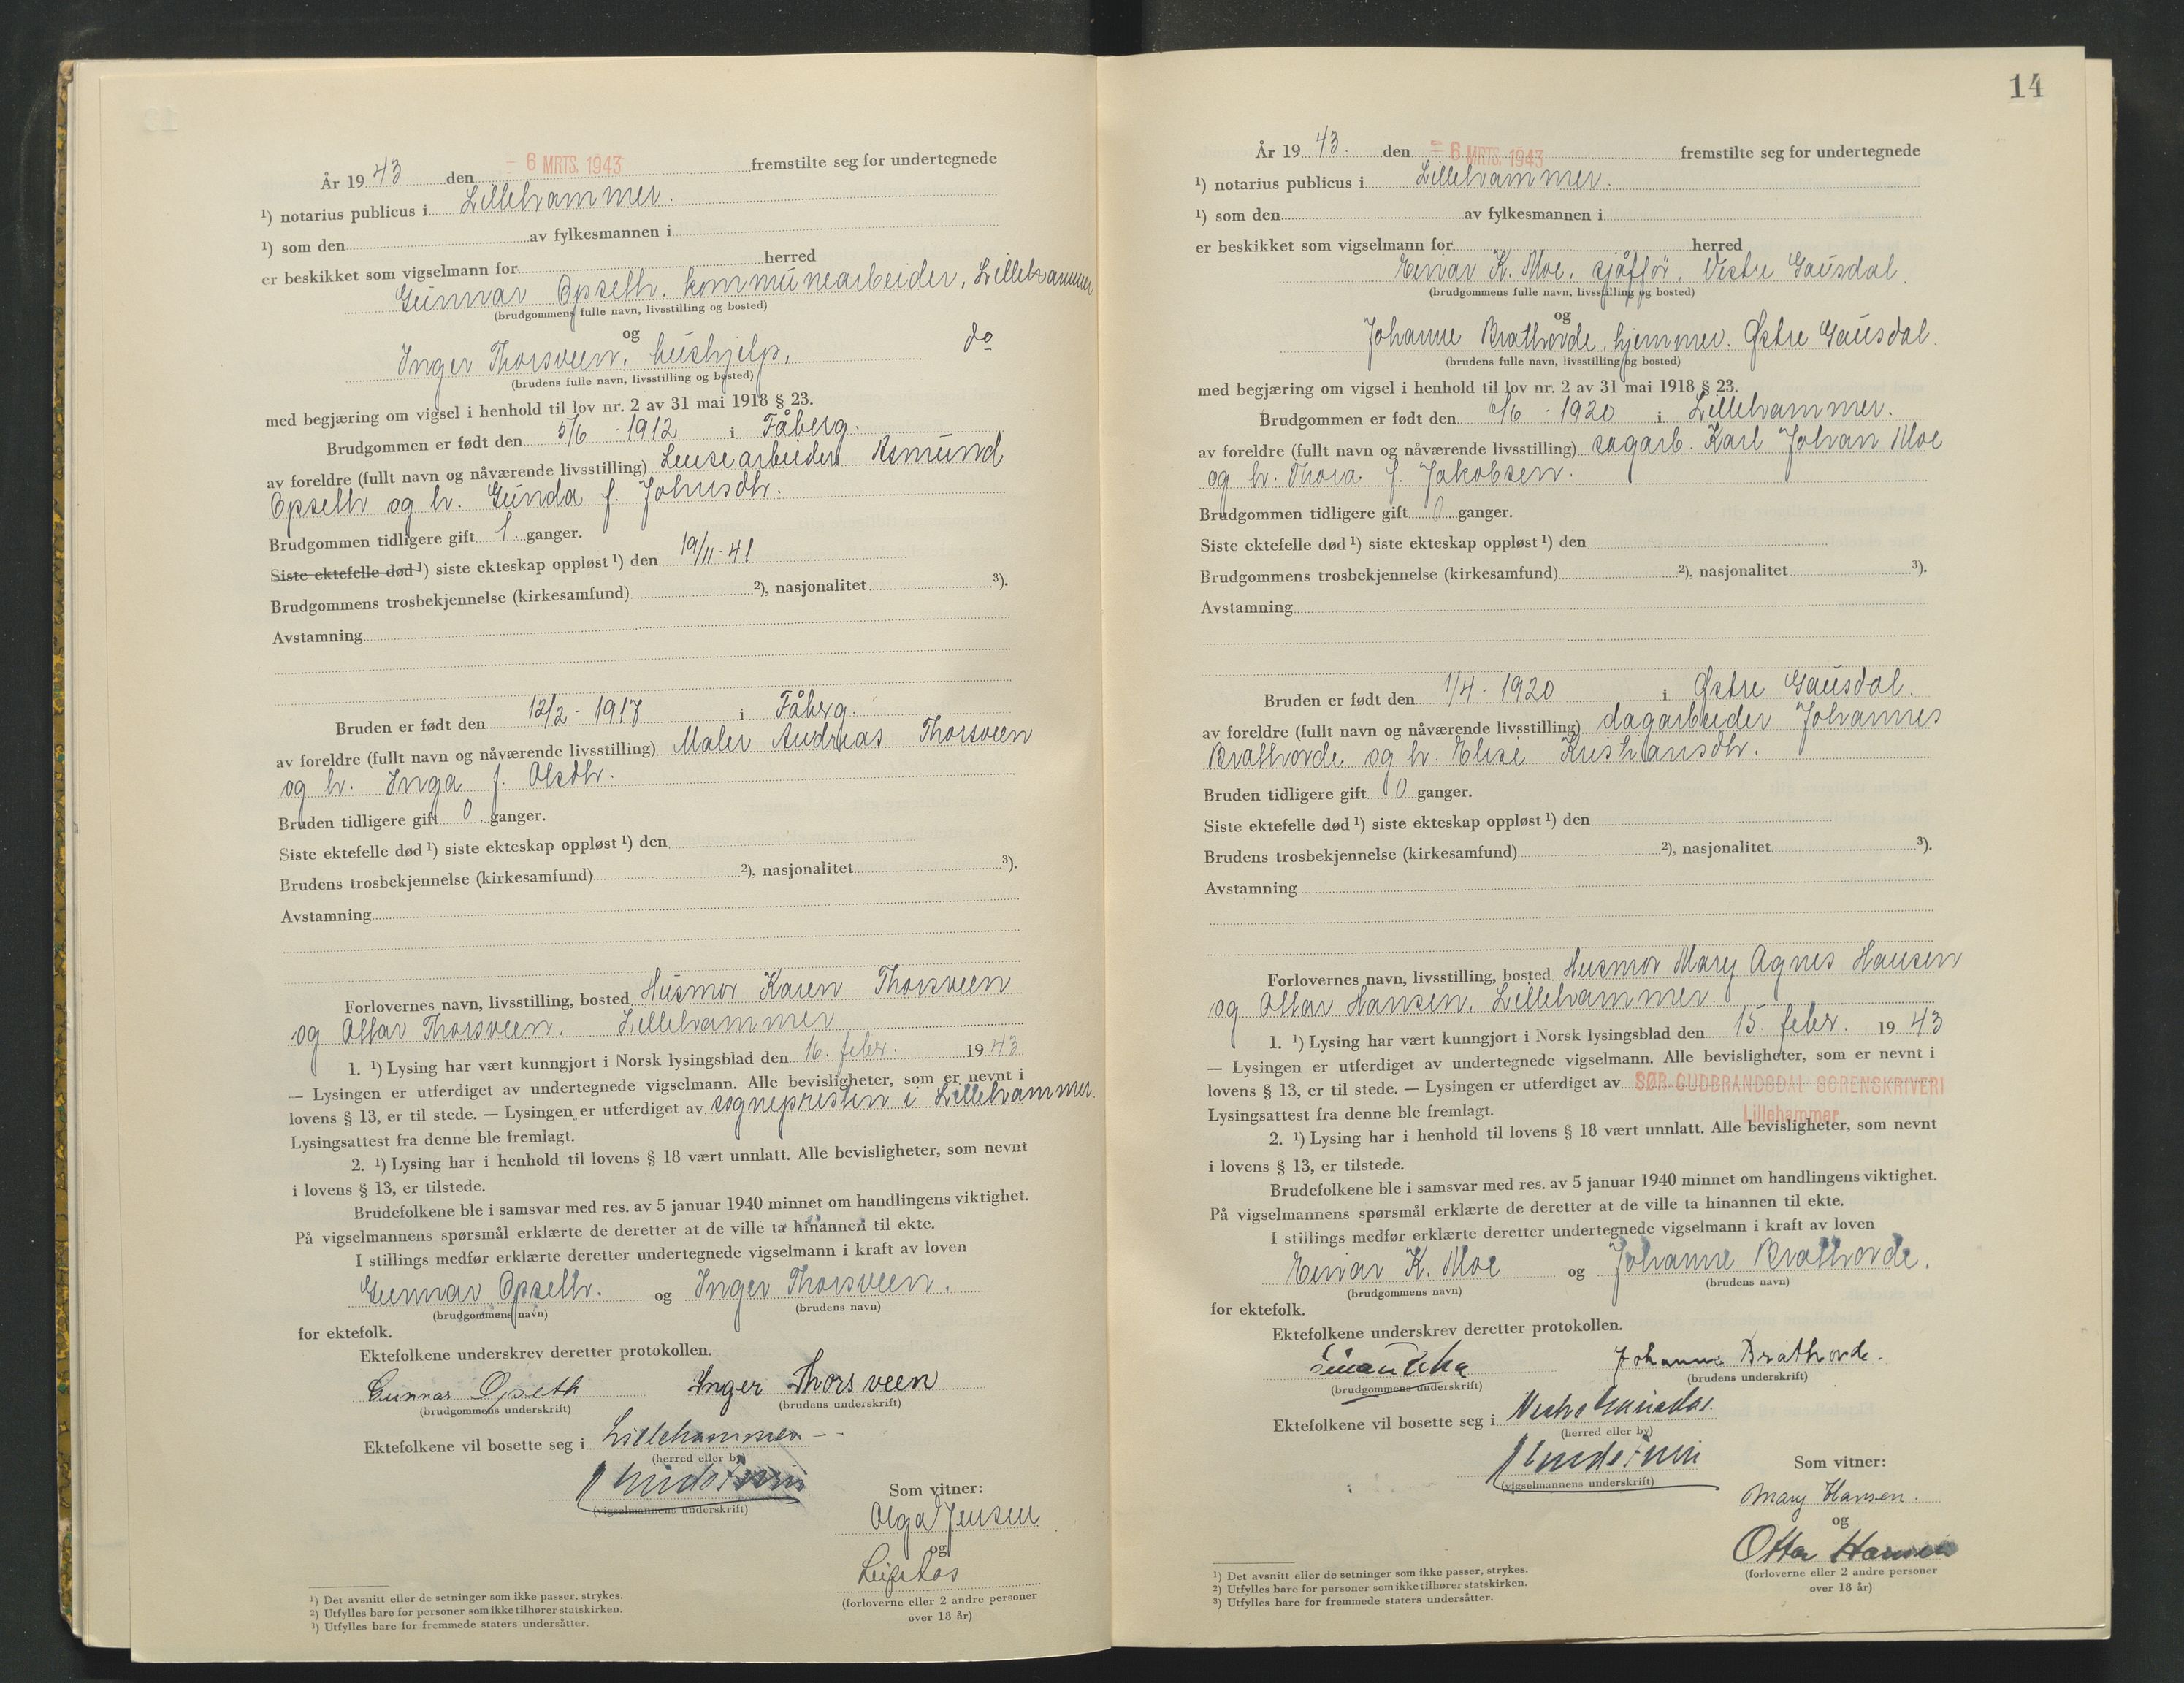 År 19 43 den - 6 MRTS. 1943 fremstilte seg for undertegnede
¹) notarius publicus i Lillehammer.
¹) som den av fylkesmannen i
er beskikket som vigselmann for herred
Gunnar Opseth, kommunearbeider, Lillehammer
(brudgommens fulle navn, livsstilling og bosted)
og
Inger Thorsveen, hushjelp, do
(brudens fulle navn, livsstilling og bosted)
med begjæring om vigsel i henhold til lov nr. 2 av 31 mai 1918 § 23.
Brudgommen er født den 5/6 - 1912 i Fåberg.
av foreldre (fullt navn og nåværende livsstilling) Lensearbeider Asmund
Opseth og h. Gunda f. Johnsdtr.
Brudgommen tidligere gift 1. ganger.
Siste ektefelle død ¹) siste ekteskap oppløst ¹) den 19/11-41
Brudgommens trosbekjennelse (kirkesamfund) ²), nasjonalitet ³).
Avstamning
Bruden er født den 12/2 - 1917 i Fåberg.
av foreldre (fullt navn og nåværende livsstilling) Maler Andreas Thorsveen
og h. Inga f. Olsdtr.
Bruden tidligere gift 0. ganger.
Siste ektefelle død ¹) siste ekteskap oppløst ¹) den
Brudens trosbekjennelse (kirkesamfund) ²), nasjonalitet ³).
Avstamning
Forlovernes navn, livsstilling, bosted Husmor Karen Thorsveen
og Ottar Thorsveen, Lillehammer
1. ¹) Lysing har vært kunngjort i Norsk lysingsblad den 16. febr. 19 43
— Lysingen er utferdiget av undertegnede vigselmann. Alle bevisligheter, som er nevnt i
lovens § 13, er til stede. — Lysingen er utferdiget av sognepresten i Lillehammer.
Lysingsattest fra denne ble fremlagt.
2. ¹) Lysing har i henhold til lovens § 18 vært unnlatt. Alle bevisligheter, som nevnt
i lovens § 13, er tilstede.
Brudefolkene ble i samsvar med res. av 5 januar 1940 minnet om handlingens viktighet.
På vigselmannens spørsmål erklærte de deretter at de ville ta hinannen til ekte.
I stillings medfør erklærte deretter undertegnede vigselmann i kraft av loven
Gunnar Opseth. og Inger Thorsveen.
(brudgommens navn) (brudens navn)
for ektefolk.
Ektefolkene underskrev deretter protokollen.
Gunnar Opseth Inger Thorsveen
(brudgommens underskrift) (brudens underskrift)
Ektefolkene vil bosette seg i Lillehammer
(herred eller by)
(vigselmannens underskrift)
Som vitner:
Olga Jensen
og
Leif Aas
(forloverne eller 2 andre personer
over 18 år)
¹) Det avsnitt eller de setninger som ikke passer, strykes.
²) Utfylles bare for personer som ikke tilhører statskirken.
³) Utfylles bare for fremmede staters undersåtter.
14
År 19 43. den - 6 MRTS. 1943 fremstilte seg for undertegnede
¹) notarius publicus i Lillehammer.
¹) som den av fylkesmannen i
er beskikket som vigselmann for herred
Einar K. Moe, sjåffør, Vestre Gausdal.
(brudgommens fulle navn, livsstilling og bosted)
og
Johanne Brathovde, hjemmev. Østre Gausdal.
(brudens fulle navn, livsstilling og bosted)
med begjæring om vigsel i henhold til lov nr. 2 av 31 mai 1918 § 23.
Brudgommen er født den /6 - 1920 i Lillehammer.
av foreldre (fullt navn og nåværende livsstilling) sagarb. Karl Johan Moe
og h. Thora f. Jakobsen.
Brudgommen tidligere gift 0 ganger.
Siste ektefelle død ¹) siste ekteskap oppløst ¹) den
Brudgommens trosbekjennelse (kirkesamfund) ²), nasjonalitet ³).
Avstamning
Bruden er født den 1/4 - 1920 i Østre Gausdal.
av foreldre (fullt navn og nåværende livsstilling) dagarbeider Johannes
Brathovde og h. Elise Kristiansdtr.
Bruden tidligere gift 0 ganger.
Siste ektefelle død ¹) siste ekteskap oppløst ¹) den
Brudens trosbekjennelse (kirkesamfund) ²), nasjonalitet ³).
Avstamning
Forlovernes navn, livsstilling, bosted Husmor Mary Agnes Hansen
og Ottar Hansen, Lillehammer.
1. ¹) Lysing har vært kunngjort i Norsk lysingsblad den 15. febr. 19 43
— Lysingen er utferdiget av undertegnede vigselmann. Alle bevisligheter, som er nevnt i
lovens § 13, er til stede. — Lysingen er utferdiget av SØR-GUDBRANDSDAL SORENSKRIVERI
Lysingsattest fra denne ble fremlagt. Lillehammer
2. ¹) Lysing har i henhold til lovens § 18 vært unnlatt. Alle bevisligheter, som nevnt
i lovens § 13, er tilstede.
Brudefolkene ble i samsvar med res. av 5 januar 1940 minnet om handlingens viktighet.
På vigselmannens spørsmål erklærte de deretter at de ville ta hinannen til ekte.
I stillings medfør erklærte deretter undertegnede vigselmann i kraft av loven
Einar K. Moe og Johanne Brathovde.
(brudgommens navn) (brudens navn)
for ektefolk.
Ektefolkene underskrev deretter protokollen.
Johanne Brathovde.
(brudgommens underskrift) (brudens underskrift)
Ektefolkene vil bosette seg i Vestre Gausdal.
(herred eller by)
(vigselmannens underskrift)
Som vitner:
Mary Hansen.
og
Ottar Hansen
(forloverne eller 2 andre personer
over 18 år)
¹) Det avsnitt eller de setninger som ikke passer, strykes.
²) Utfylles bare for personer som ikke tilhører statskirken.
³) Utfylles bare for fremmede staters undersåtter.